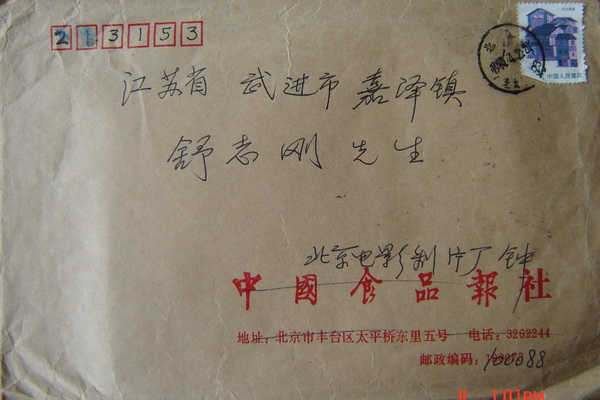 213153
江苏省 武进市 嘉泽镇
舒志刚 先生
北京电影制片厂 钟
中國食品報社
地址:北京市丰台区太平桥东里五号 电话:3262244
邮政编码:100088
中国人民邮政
北京